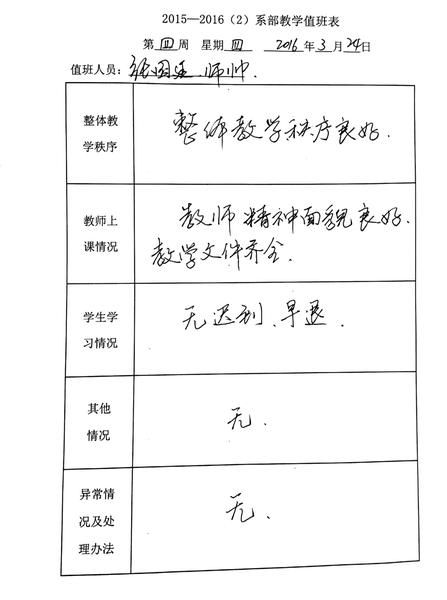 2015—2016（2）系部教学值班表
第四周 星期四 2016年3月24日
值班人员：张国廷.师帅.
整体教
学秩序
整体教学秩序良好.
教师上
课情况
教师精神面貌良好.
教学文件齐全.
学生学
习情况
无迟到.早退.
其他
情况
无.
异常情
况及处
理办法
无.